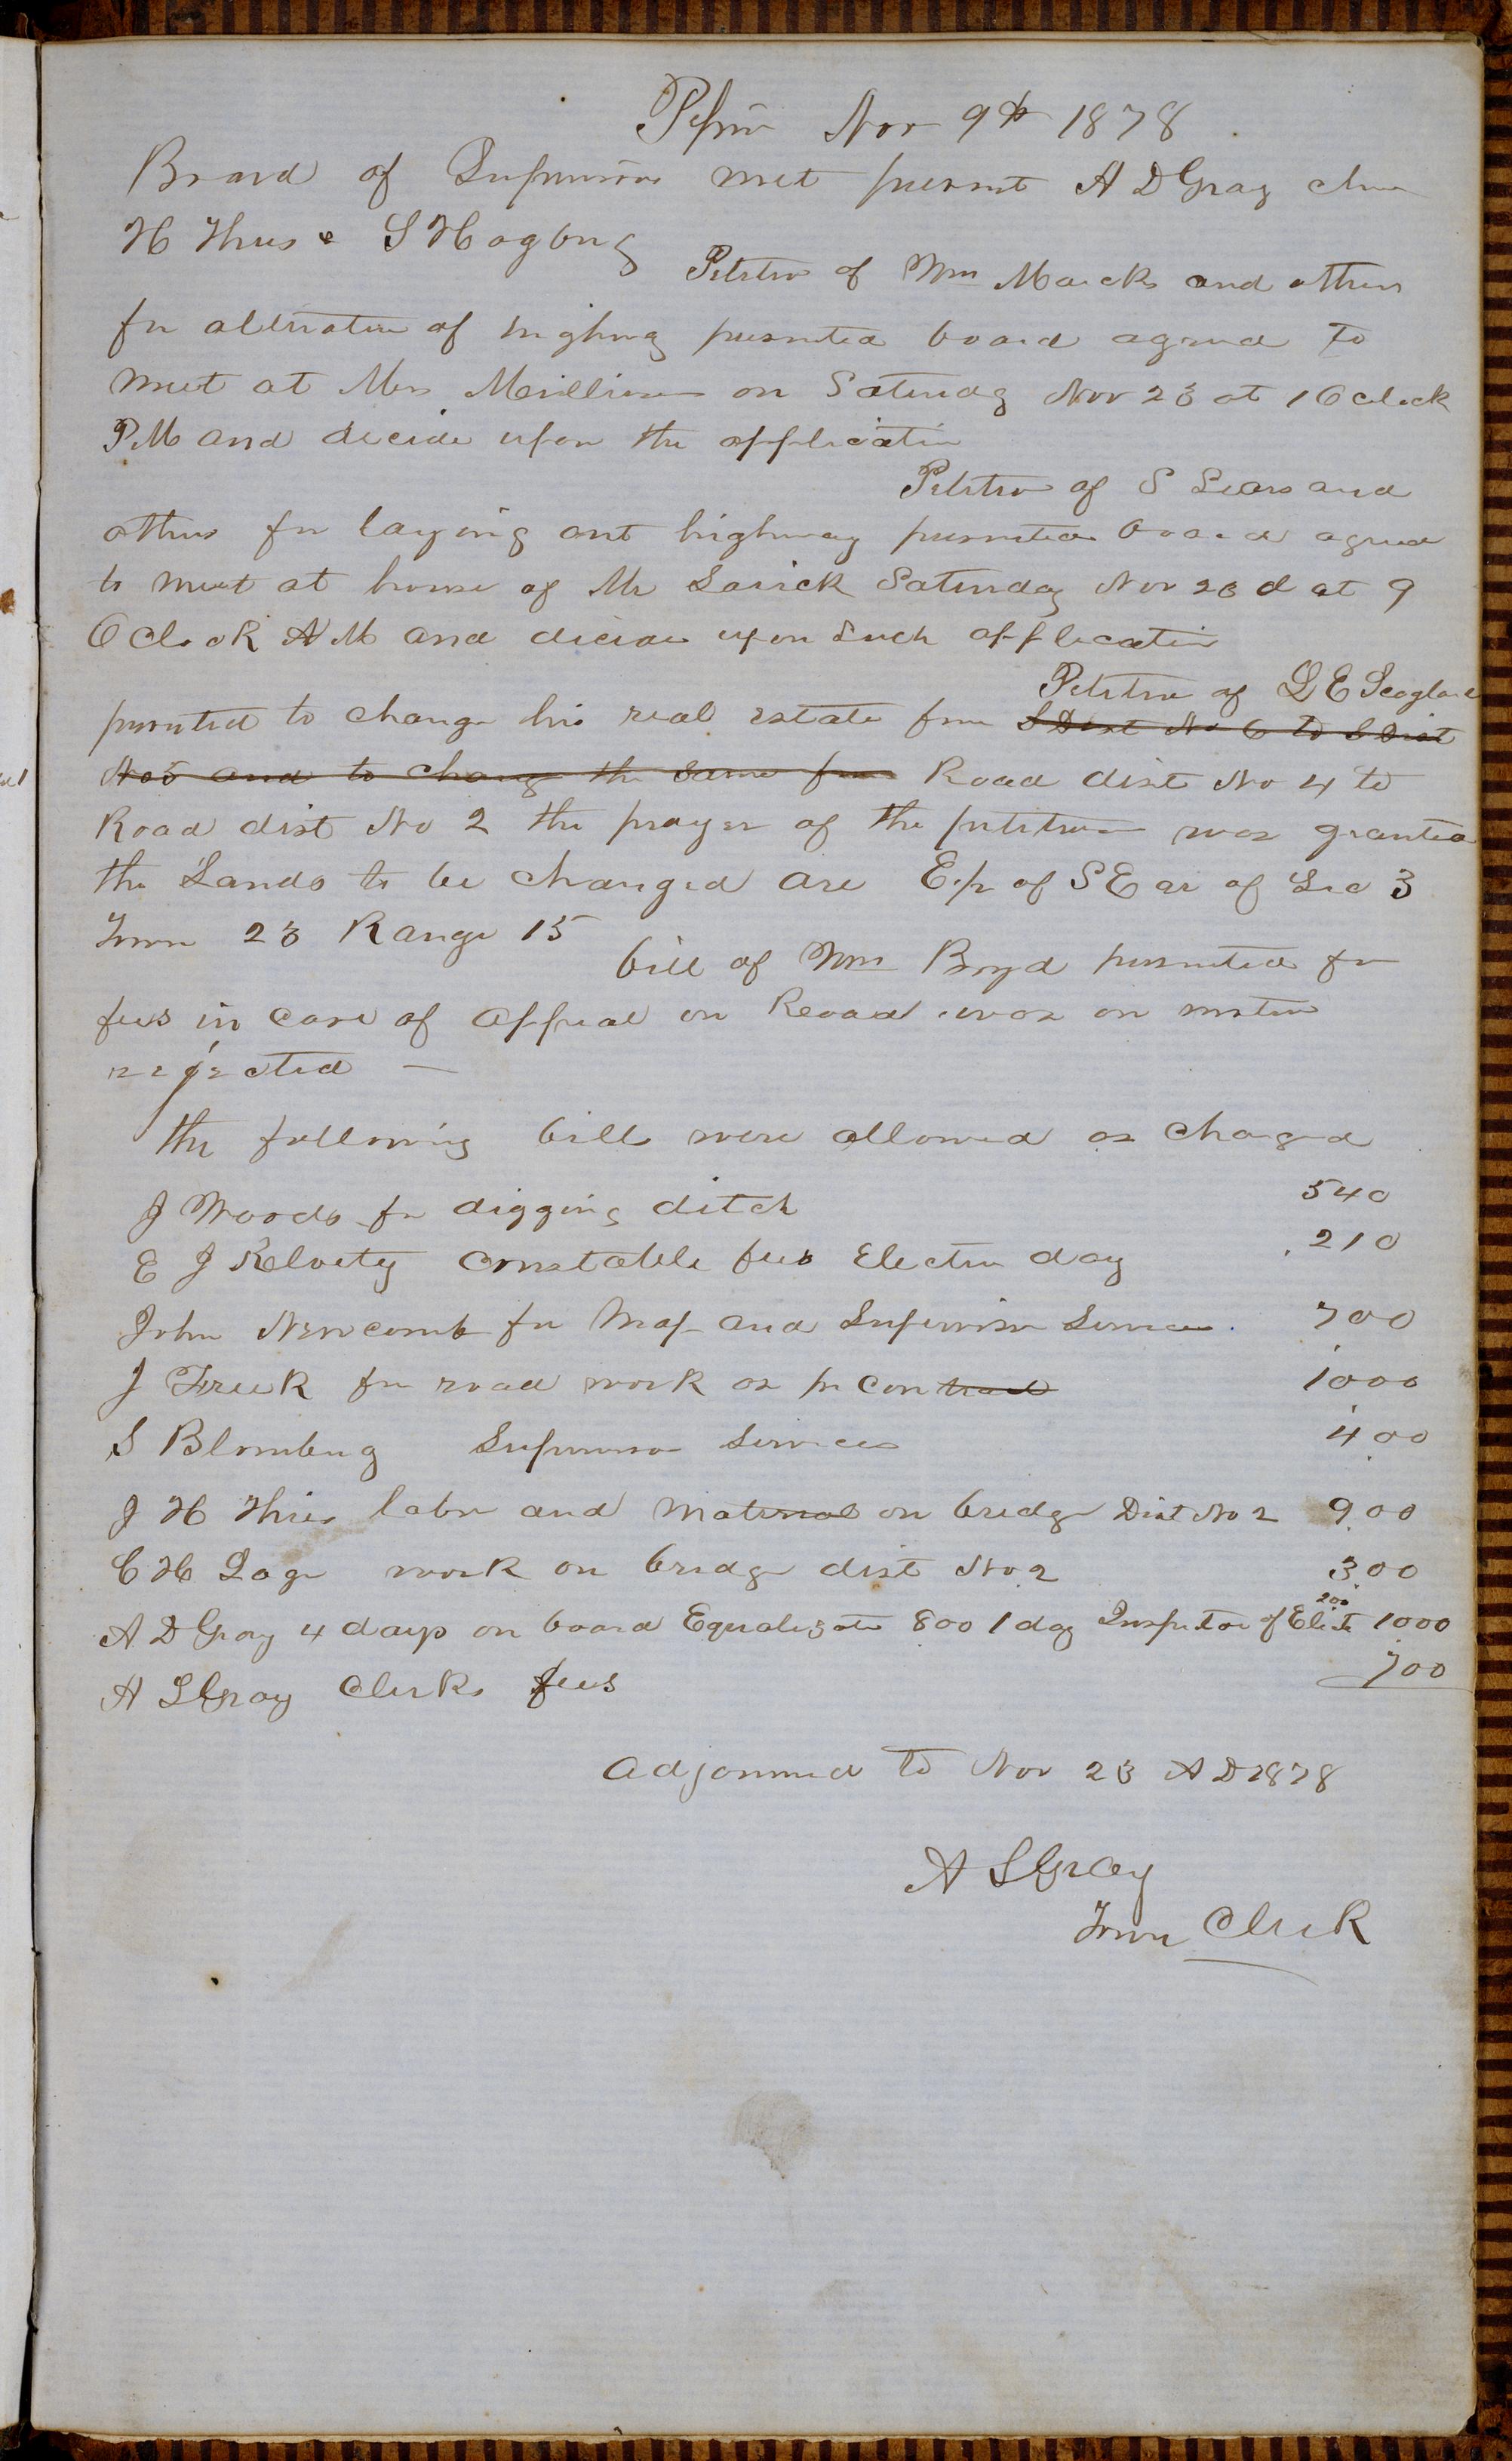 Pepin Nov 9th 1878
Board of Supervisors met present A D Gray chm
H Thies & S Hogberg
Petition of Wm Marcks and others
for alteration of highway presented board agreed to
meet at Mrs on Saturday Nov 23 at 1 Oclock
P.M and decide upon the application
Petition of S Sears and
others for laying out highway presented board agreed
to meet at house of Mr Larick Saturday Nov 23d at 9
Oclock AM and decide upon such application
Petition of L E
presented to change his real estate from S Dist No 6 to S Dist
No 5 and to change the same from Road dist No 4 to
Road dist No 2 the prayer of the petitioner was granted
the Lands to be changed are E.½ of SE qr of Sec 3
Town 23 Range 15
bill of Wm Boyd presented for
fees in case of Appeal on Road was on motion
rejected —
the following bills were allowed as charged
J Woods for digging ditch 540
E J constable fees Election day 210
John Newcomb for Map and Supervisor Services 700
J Freek for road work as per contract 1000
S Blomberg Supervisor Services 400
J H Thies labor and material on bridge Dist No 2 900
C H Page work on bridge dist No 2 300
200
A D Gray 4 days on board Equalization 800 1 day Inspector of Elect 1000
A S Gray Clerks fees 700
adjourned to Nov 23 AD 1878
A S Gray
Town Clerk